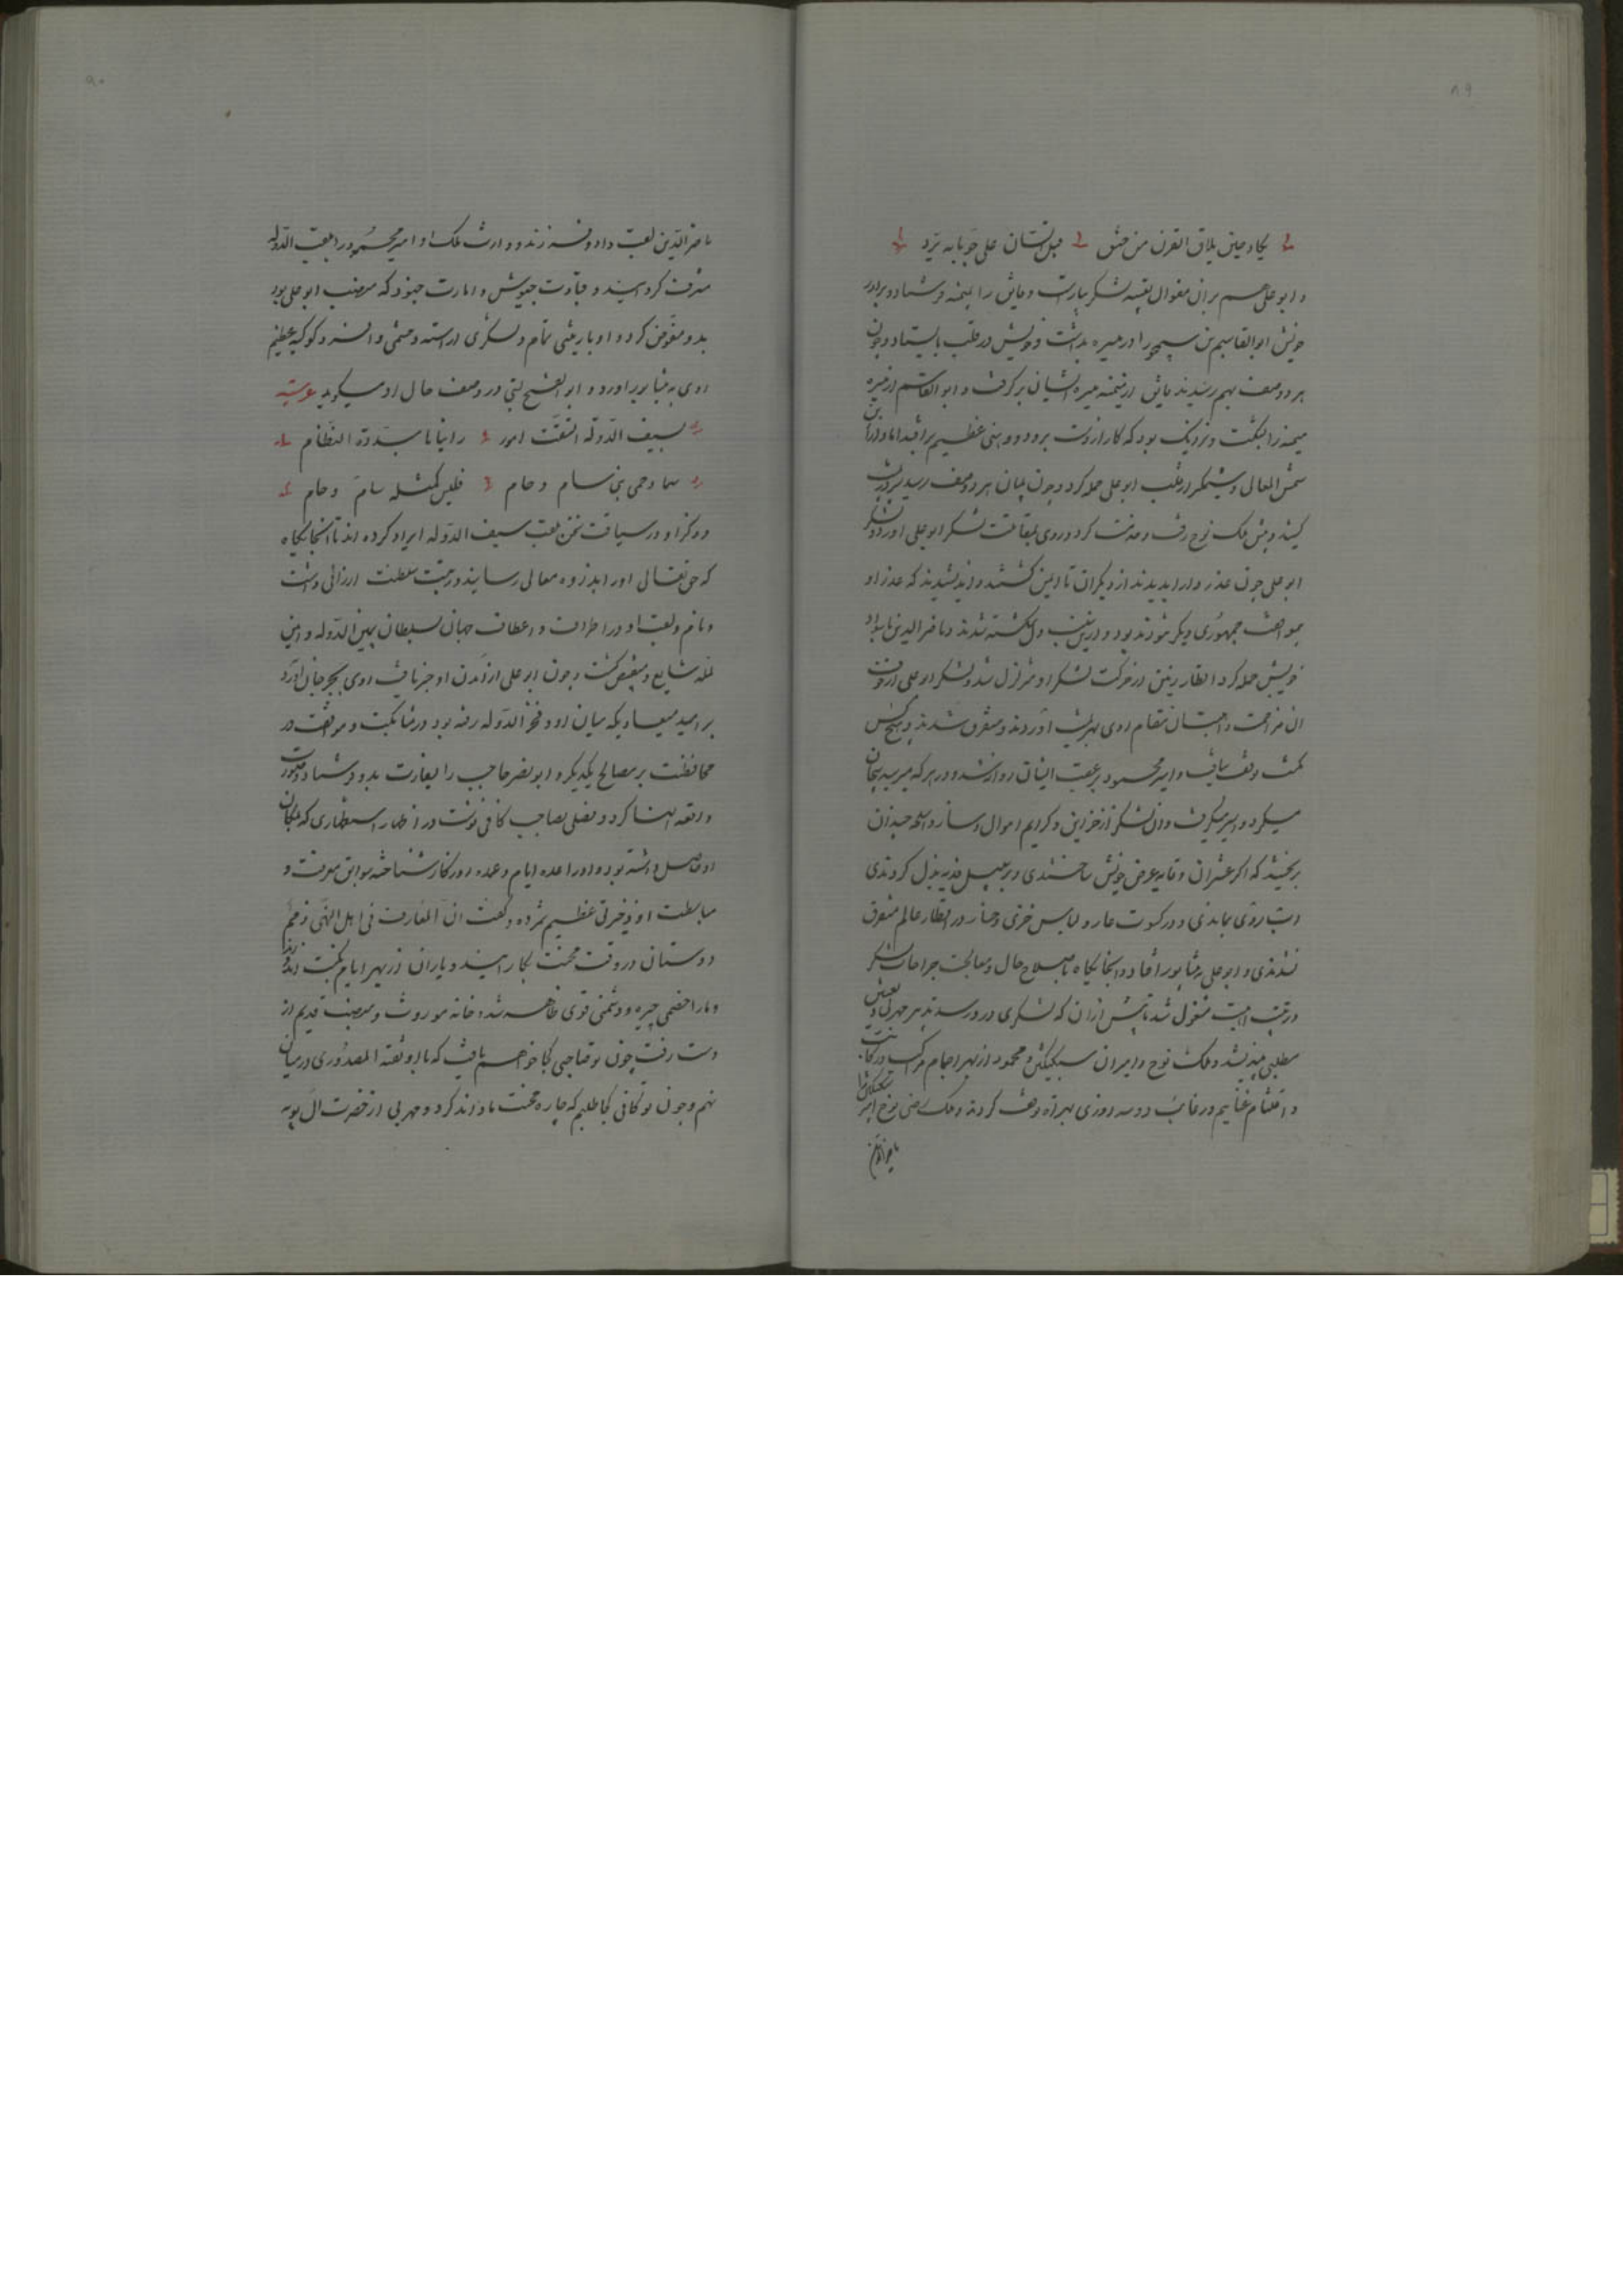 ۸۹
یکاد حین یلاق القرن من حنق قبل السنان علی حوبائه یرد
و ابوعلی هم بران منوال تعبیه لشکر بیاراست و فایق را بمیمنه فرستاد و برادر
خویش ابوالقاسم بن سیمجور را در میسره بداشت و خویش در قلب بایستاد و چون
هر دو صف بهم رسیدند فایق از میمنه میسره ایشان برگرفت و ابوالقاسم از میسره
میمنه را بشکست و نزدیک بود که کار از دست برود و وهنی عظیم برافتد اما دارا بن
شمس المعالی وشمکیر از قلب ابوعلی حمله کرد و چون میان هر دو صف رسید سپر در پشت
کشید و پیش ملک نوح رفت و خدمت کرد و روی بمقاتلت لشکر ابوعلی آورد و لشکر
ابوعلی چون غدر دارا بدیدند از دیگران نا ایمن گشتند و اندیشیدند که غدر او
بمواقفت جمهوری دیگر تواند بود و ازین سبب دل شکسته شدند و ناصرالدین با سواد
خویش حمله کرد اقطار زمین از حرکت لشکر او متزلزل شد و لشکر ابوعلی از خوف
آن مزاحمت و استبسال مقام روی بهزیمت آوردند و متفرق شدند و هیچ کس
مکث و وقف نیافت و امیر محمود بر عقب ایشان روان شد و در هر که میرسید بیجان
میکرد و اسیر میگرفت و آن لشکر از خزاین و کرایم اموال و سایر اسلحه چندان
بریختند که اگر عشر آن وقایه عرض خویش ساختندی و بر سبیل فدیه بذل کردندی
بنشاپور افتاد و آنجایگاه باصلاح حال و معالجت جراحات لشکر
و ترتیب اهبت مشغول شد تا پیش از آن که لشکری در رسد تدبیر مهربی و
مطلبی میندیشد و ملک نوح و امیران سبکتکین و محمود از بهر اجمام مراکب و رکائب
و اقتسام غنایم و رغائب دو سه روزی بهراة وقف کردند و ملک رضی نوح امیر سبکتکین را
ناصرالدین
۹۰
ناصرالدین لقب داد و فرزند و وارث ملک او امیر محمود را بلقب سیف الدوله
مشرف گردانید و قیادت جیوش و امارت جنود که منصب ابوعلی بود
بدو مفوض کرد و او با زینتی تمام و لشکری آراسته و حشمتی وافر و کوکبه عظیم
روی به نیشابور آورد و ابوالفتح بستی در وصف حال او میگوید عربیه
بسیف الدوله اتسقت امور رایناها مبددة النظام
سما و حمی بنی سام و حام فلیس کمثله سام و حام
و ذکر او در سیاقت سخن بلقب سیف الدوله ایراد کرده اند تا آنجایگاه
که حق تعالی او را بذروه معالی رسانید و رتبت سلطنت ارزانی داشت
و نام و لقب او در اطراف و اعطاف جهان بسلطان یمین الدوله و امین
المله شایع و مستفیض گشت و چون ابوعلی از آمدن او خبر یافت روی بجرجان آورد
بر امید میعادی که میان او و فخر الدوله رفته بود در مشارکت و موافقت در
محافظت بر مصالح یکدیگر و ابونصر حاجب را بسفارت بدو فرستاد
و رقعه انشا کرد و فصلی بصاحب کافی نوشت در اظهار استظهاری که بمکان
او حاصل داشته بود و او را عده ایام و عمده روزگار شناخته بسوابق معرفت و
مباسطت او ذخیرتی عظیم شمرده و گفت ان المعارف فی اهل النهی ذمم
دوستان در وقت محنت بکار آیند و یاران از بهر ایام نکبت
و ما را خصمی چیره و دشمنی قوی ظاهر شد و خانه موروث و منصب قدیم از
دست رفت چون تو صاحبی کجا خواهم یافت که با او نفثة المصدوری در میان
نهم و چون تو کافی کجا طلبم که چاره محنت ما داند کرد و مهربی از حضرت آل بویه